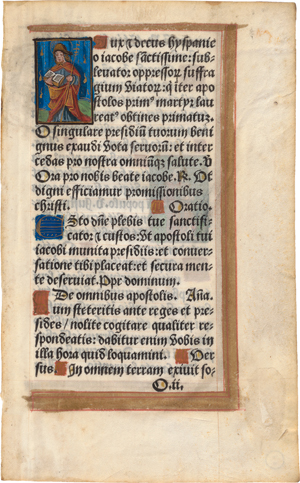 ux ⁊ decus hyspanie
o iacobe sāctissime: sub-
leuator oppressor̄ suffra
gium viator̄: q̇ iter apo
stolos primꝰ martyr lau
reatꝰ obtines primatū.
O singulare presidiū tuorum beni
gnus exaudi vota seruorū: et inter
cedas pro nostra omniūqꝫ salute. V
Ora pro nobis beate iacobe. R. Vt
digni efficiamur promissionibus
christi. Oratio.
Esto dn̄e plebis tue sanctifi-
cator: ⁊ custos: vt apostoli tui
iacobi munita presidiis: et conuer-
satione tibi placeat: et secura men-
te deseruiat. Per dominum.
De omnibus apostolis. Aña.
um steteritis ante reges et pre-
sides / nolite cogitare qualiter re-
spondeatis: dabitur enim vobis in
illa hora quid loquamini. Ver
sus In omnem terram exiuit so-
O.ii.